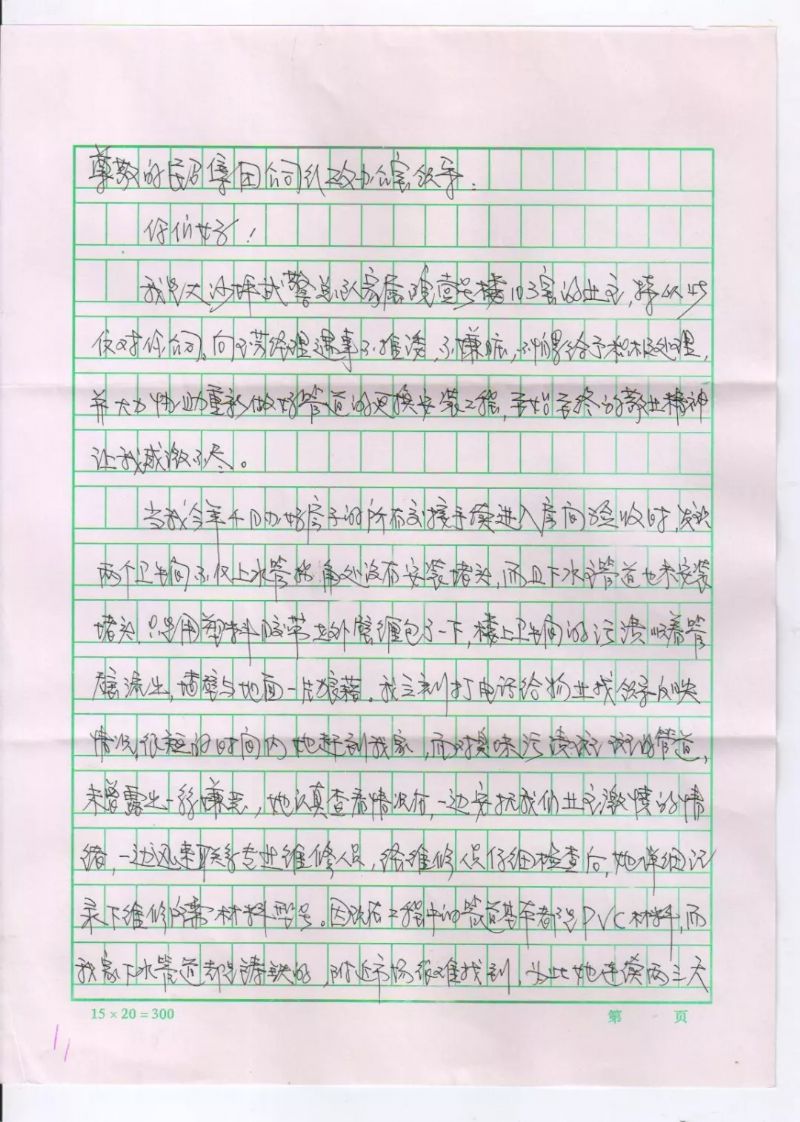 尊敬的民基集团公司行政办公室领导:
你们好!
我是大沙坪武警总队家属院壹号楼103室的业主,特以此
仅对你公司 向 芳经理遇事不推诿,不嫌脏,不怕累给予积极处理,
并大力协助重新做好管道的更换安装工程,至始至终的敬业精神
让我感激不尽。
当我今年4月办好房子的所有交接手续进入房间验收时,发现
两个卫生间不仅上水管拐角处没有安装堵头,而且下水管道也未安装
堵头,只是用塑料胶带在外层缠包了一下,楼上卫生间的污渍顺着管
壁流出,墙壁与地面一片狼藉。我立刻打电话给物业找领导反映
情况,很短的时间内她赶到我家,面对臭味污渍斑斑的管道,
未曾露出一丝嫌恶,她认真查看情况后,一边安抚我们业主激愤的情
绪,一边迅速联系专业维修人员,经维修人员仔细检查后,她详细记
录下维修所需材料型号。因现在工程中的管道基本都是PVC材料,而
我家下水管道却是铸铁的,附近市场很难找到,为此她连续两三天
15×20=300
第 页